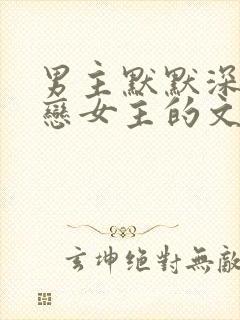 男主默默深
戀女主的文
玄坤絕對無敵